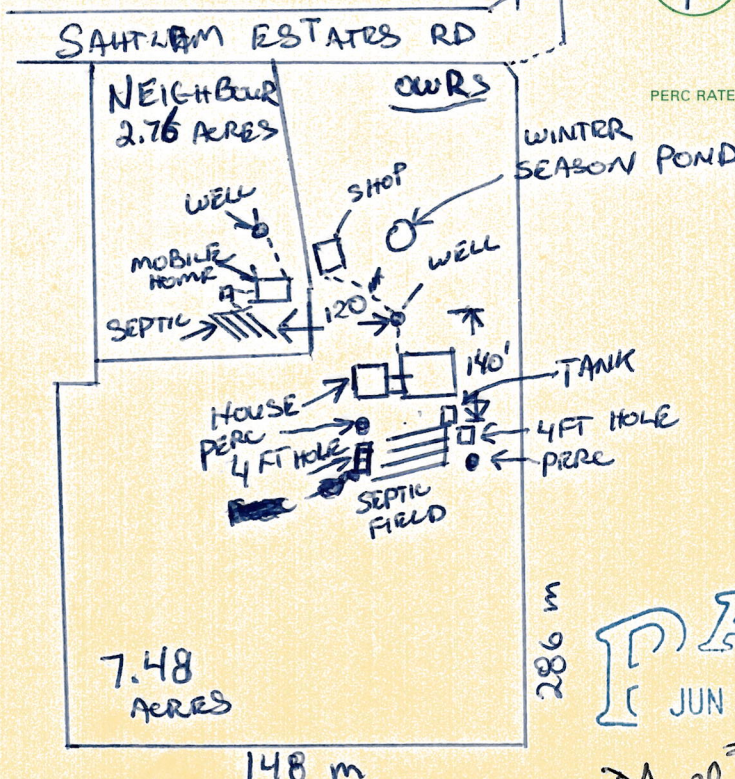 SAHTLAM ESTATES RD
NEIGHBOUR
2.76 ACRES
OURS
PERC RATE
WINTER
SEASON POND
SHOP
WELL
WELL
MOBILE
HOME
120'
SEPTIC
140'
TANK
HOUSE
PERC
4 FT HOLE
4 FT HOLE
PERC
SEPTIC
FIELD
286 m
7.48
ACRES
JUN
148 m